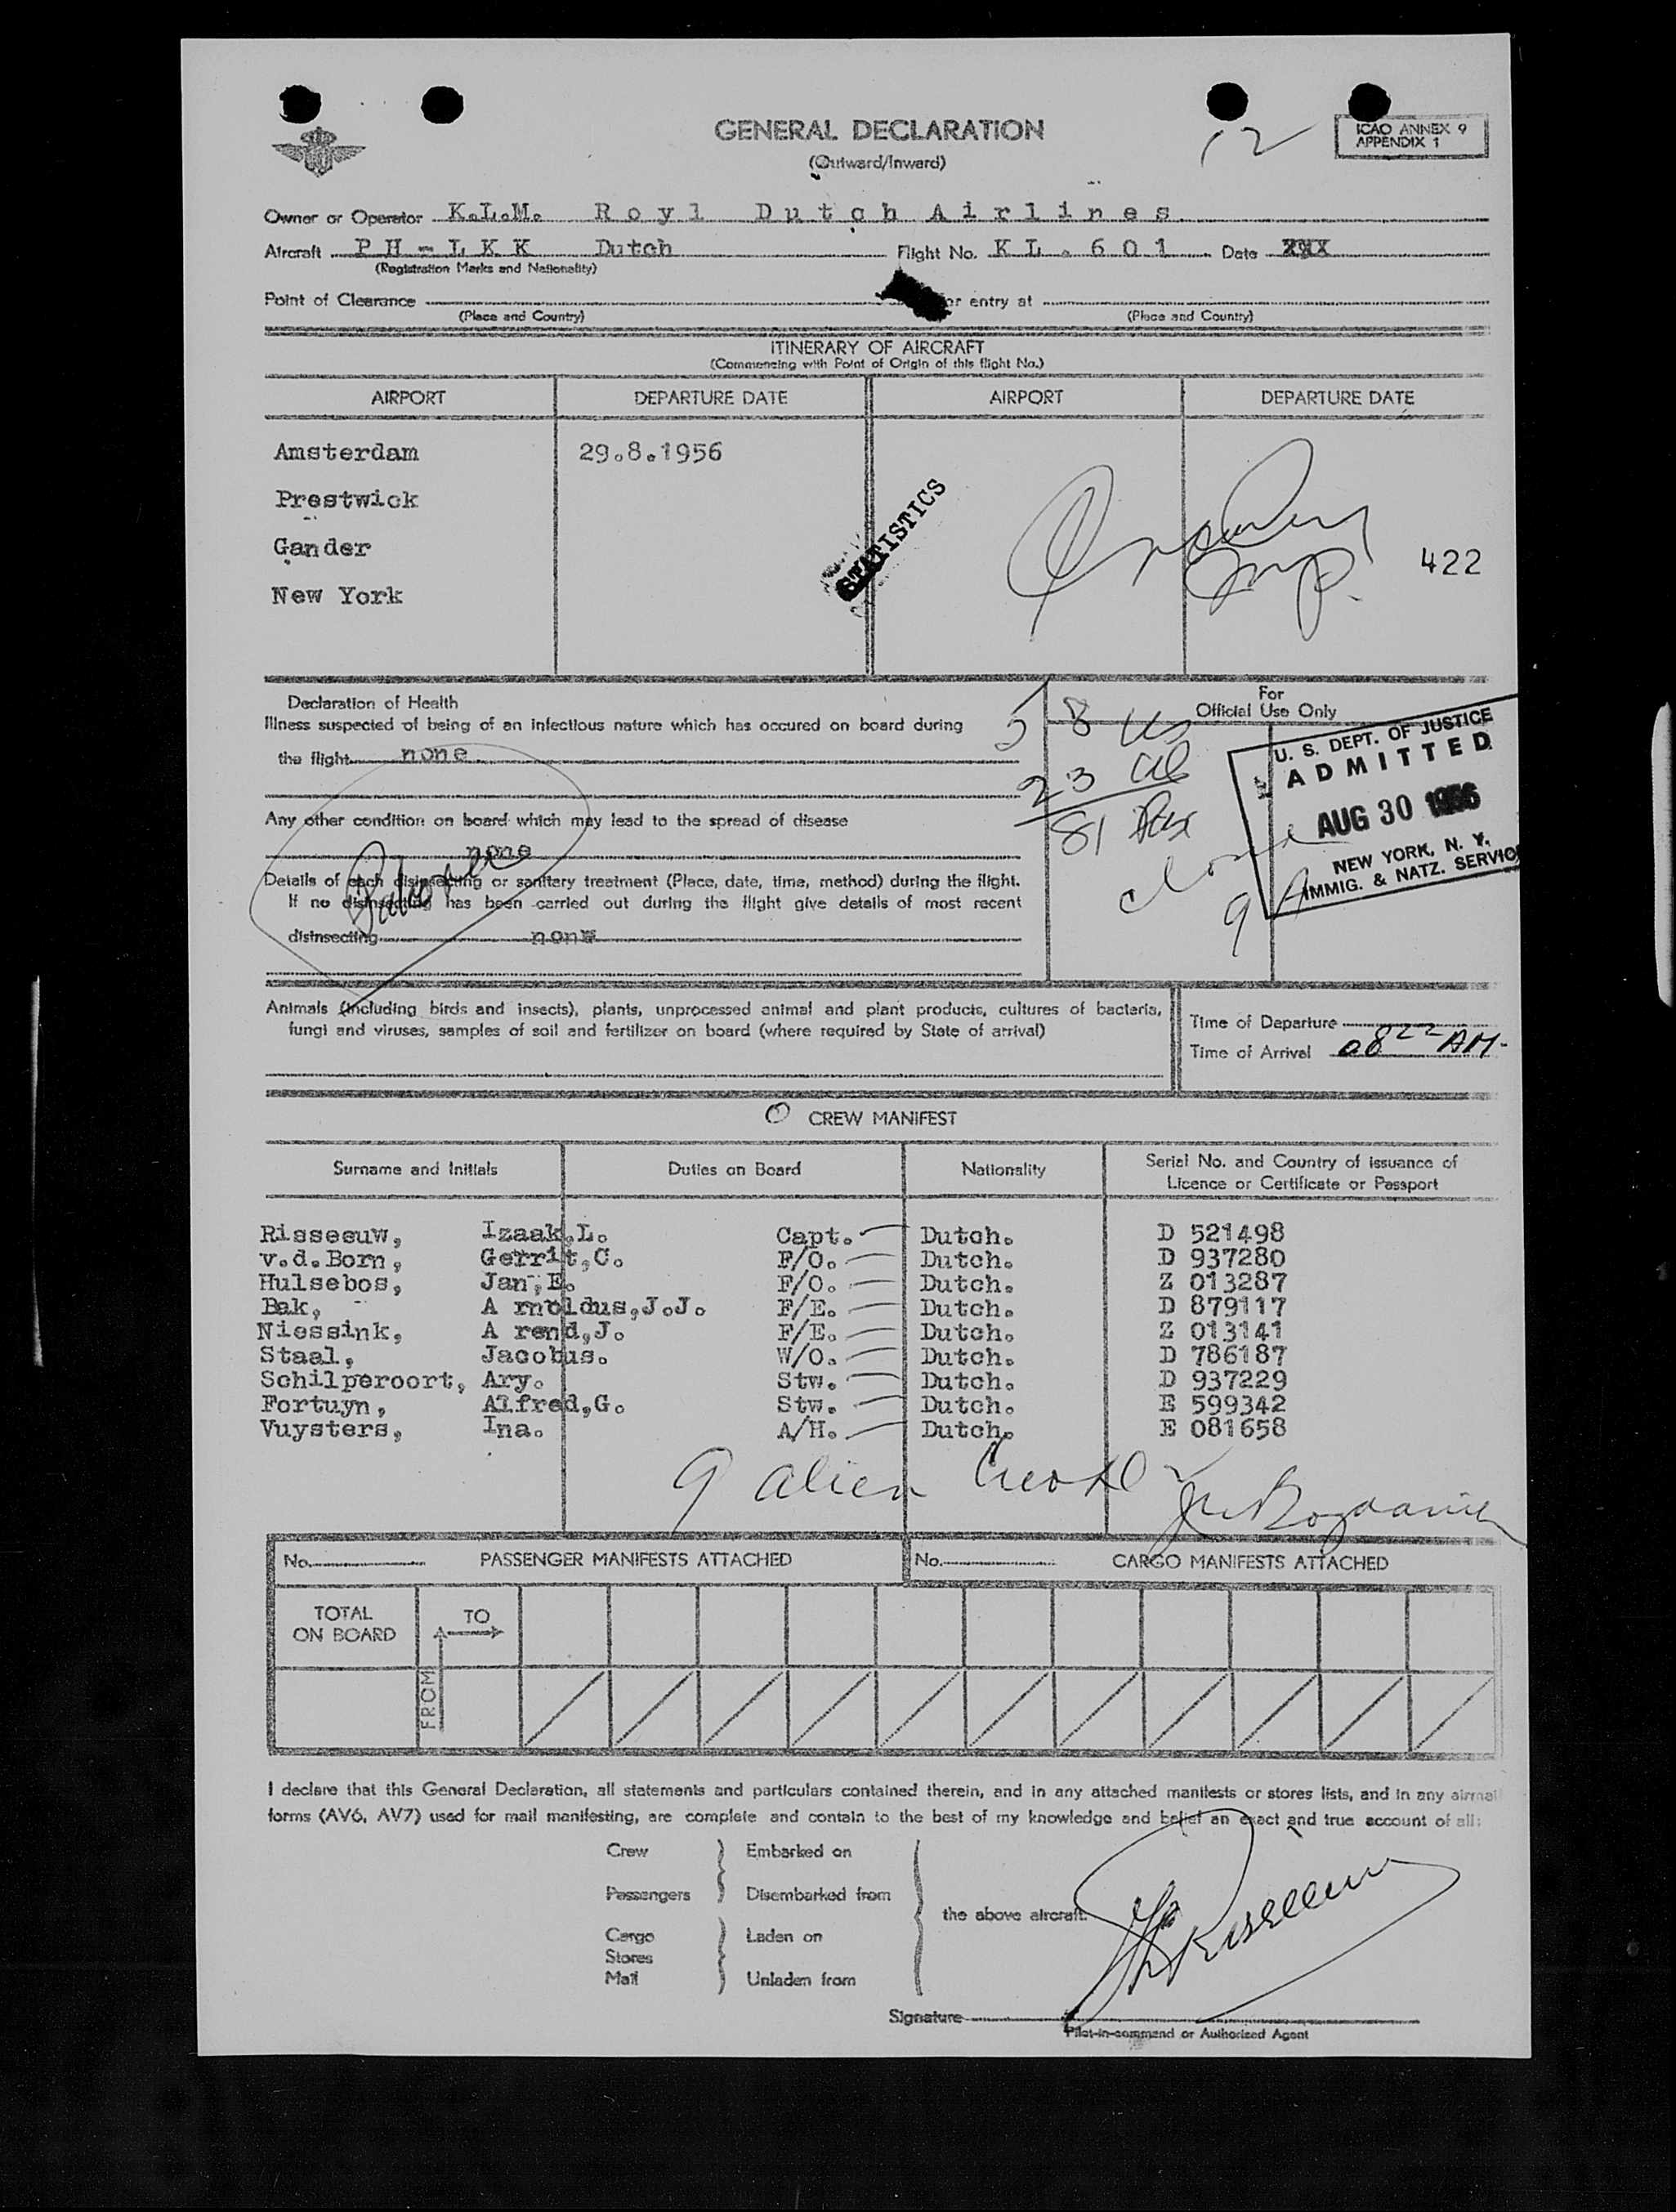 GENERAL DECLARATION
(Outward/Inward)
12
ICAO ANNEX 9
APPENDIX 1
Owner or Operator K.L.M. Royl Dutch Airlines
Aircraft PH-LKK Dutch Flight No. KL.601 Date XXX
(Registration Marks and Nationality)
Point of Clearance or entry at
(Place and Country) (Place and Country)
ITINERARY OF AIRCRAFT
(Commencing with Point of Origin of this flight No.)
AIRPORT DEPARTURE DATE AIRPORT DEPARTURE DATE
Amsterdam 29.8.1956
Prestwick
Gander
New York
STATISTICS
422
Declaration of Health
Illness suspected of being of an infectious nature which has occured on board during
the flight none
Any other condition on board which may lead to the spread of disease
none
Details of each disinsecting or sanitary treatment (Place, date, time, method) during the flight.
If no disinsecting has been carried out during the flight give details of most recent
disinsecting none
For
Official Use Only
58 US
23 Al
81 Pax
9 A
U. S. DEPT. OF JUSTICE
ADMITTED
AUG 30 1956
NEW YORK, N. Y.
IMMIG. & NATZ. SERVICE
Animals (including birds and insects), plants, unprocessed animal and plant products, cultures of bacteria,
fungi and viruses, samples of soil and fertilizer on board (where required by State of arrival)
Time of Departure
Time of Arrival 0822 AM-
CREW MANIFEST
Surname and Initials Duties on Board Nationality Serial No. and Country of issuance of
Licence or Certificate or Passport
Risseeuw, Izaak,L. Capt. Dutch. D 521498
v.d.Born, Gerrit,C. F/O. Dutch. D 937280
Hulsebos, Jan,E. F/O. Dutch. Z 013287
Bak, A rnoldus,J.J. F/E. Dutch. D 879117
Niessink, A rend,J. F/E. Dutch. Z 013141
Staal, Jacobus. W/O. Dutch. D 786187
Schilperoort, Ary. Stw. Dutch. D 937229
Fortuyn, Alfred,G. Stw. Dutch. E 599342
Vuysters, Ina. A/H. Dutch. E 081658
9 alien
No. PASSENGER MANIFESTS ATTACHED No. CARGO MANIFESTS ATTACHED
TOTAL
ON BOARD
TO
FROM
I declare that this General Declaration, all statements and particulars contained therein, and in any attached manifests or stores lists, and in any airmail
forms (AV6, AV7) used for mail manifesting, are complete and contain to the best of my knowledge and belief an exact and true account of all:
Crew Embarked on
Passengers Disembarked from
the above aircraft.
Cargo Laden on
Stores
Mail Unladen from
Signature
Pilot-in-command or Authorized Agent